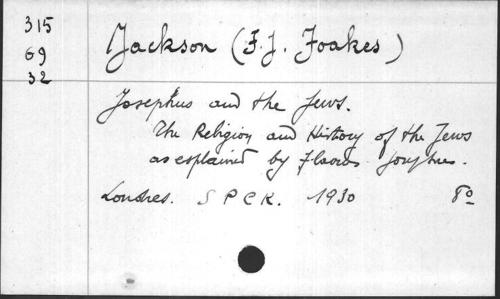 315
69
32
Jackson (F. J. Foakes)
Josephus and the Jews.
The Religion and History of the Jews
as explained by Flavius Josephus.
Londres. S P C K. 1930 8º